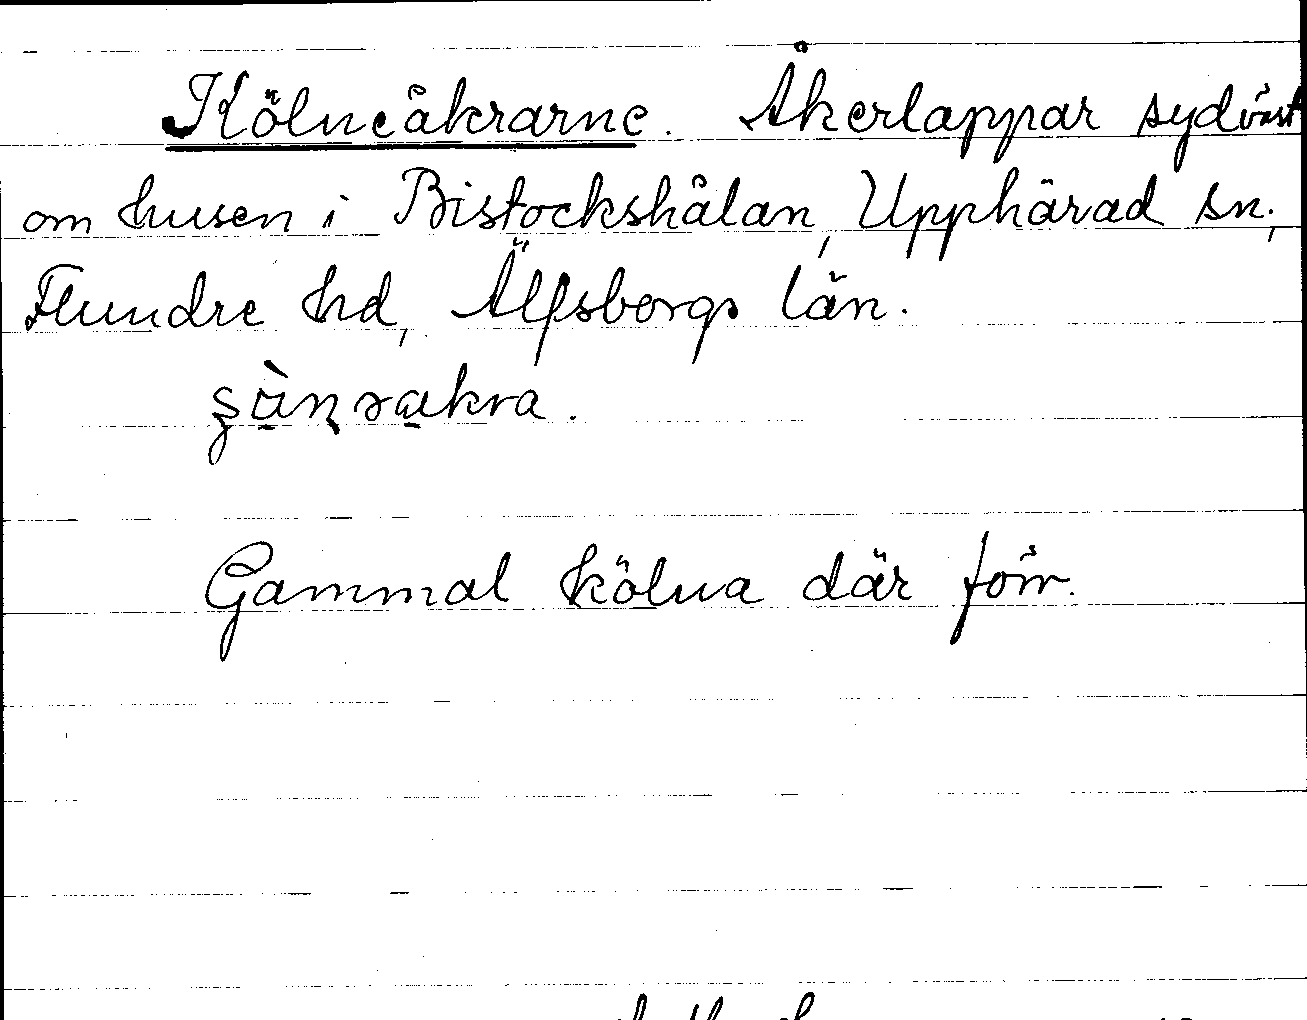 Kölneåkrarne. Åkerlappar sydväst
om husen i Bistockshålan, Upphärad sn.,
Flundre hd, Älfsborgs län.
Gammal kölna där förr.